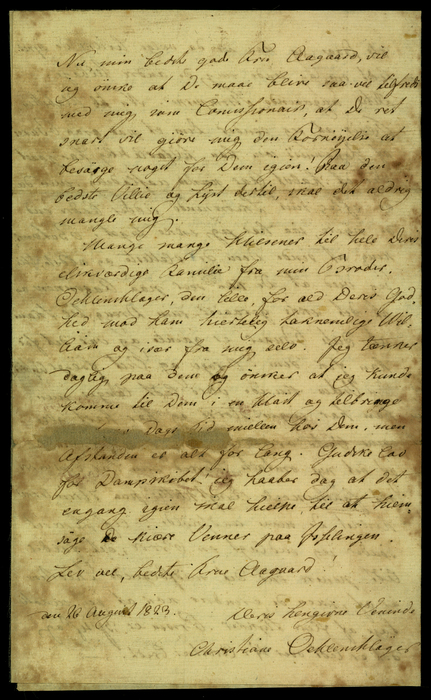 Nu, min bedste gode Fru Aagaard, vil
jeg önske at De maae blive saa vel tilfreds
med mig, som Comissionair, at De ret
snart vil giöre mig den Fornöyelse at
besörge noget for Dem igien! Paa den
bedste Villie og Lyst dertil, skal det aldrig
mangle mig.
Mange mange Hilsener til hele Deres
elskværdige Familie fra min Broder,
Oehlenschläger, den lille, for ald Deres God-
hed mod ham hiertelig taknemlige Wil-
liam og især fra mig selv. Jeg tænker
daglig paa Dem og önsker at jeg kunde
komme til Dem i en Hast og tilbringe
Dags Tid imellem hos Dem, men
Afstanden er alt for lang. Gudskelov
for Dampskibet! jeg haaber dog at det
engang igien skal hielpe til at hiem-
söge de kiære Venner paa
Lev vel, bedste Frue Aagaard!
den 26 August 1823.
Deres hengivne Veninde
Christiane Oehlenschläger